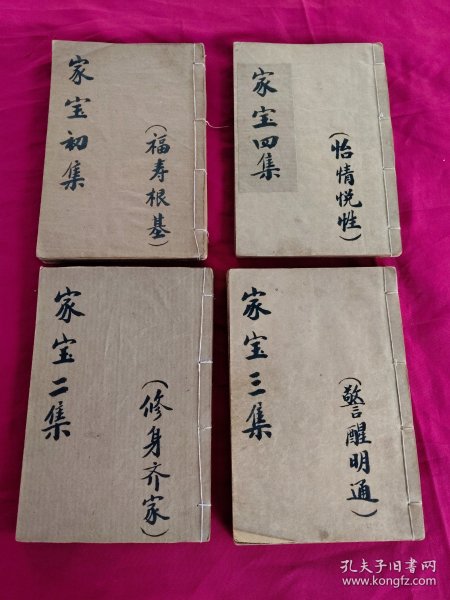 家宝初集
（福寿根基）
家宝四集
（怡情悦性）
家宝二集
（修身齐家）
家宝三集
（警醒明通）
孔夫子旧书网
www.kongfz.com